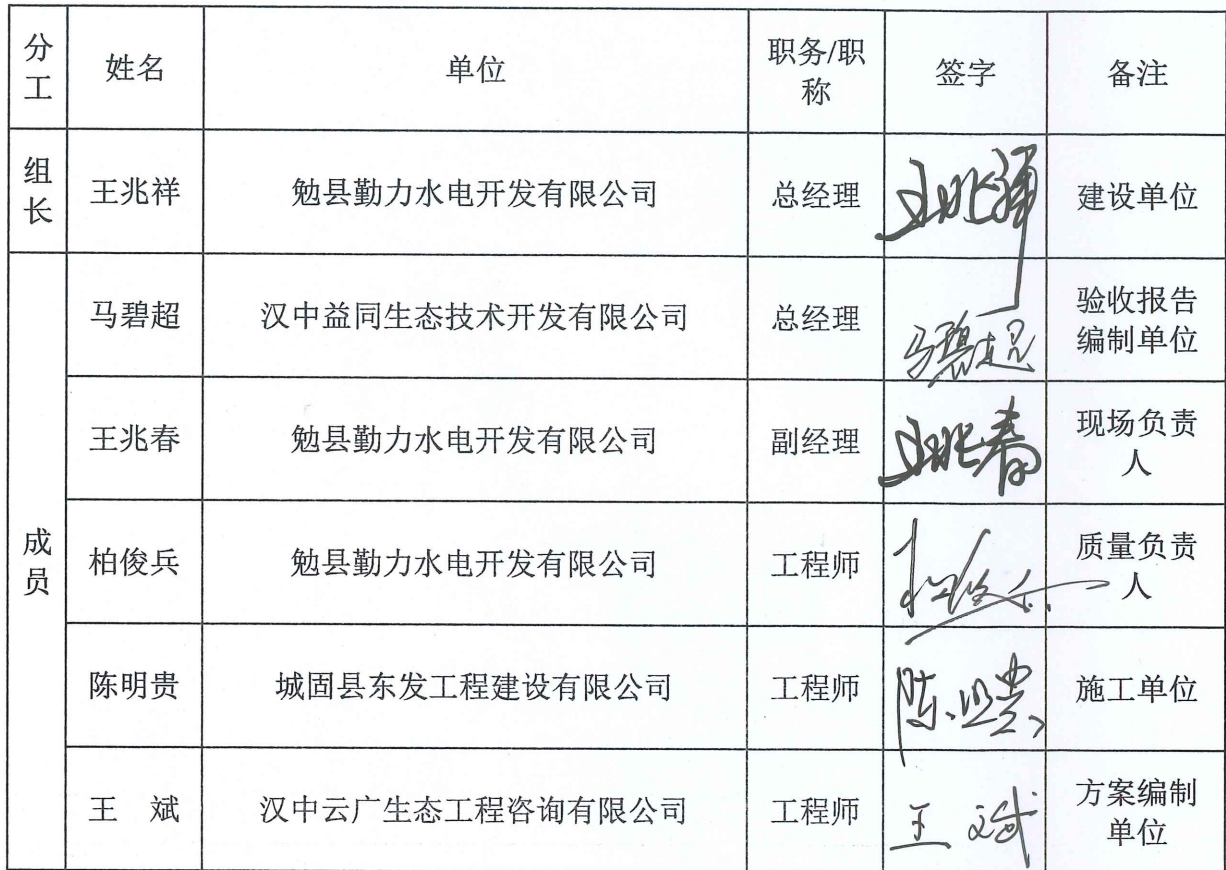 分工 姓名 单位 职务/职称 签字 备注
组长 王兆祥 勉县勤力水电开发有限公司 总经理 王兆祥 建设单位
成员 马碧超 汉中益同生态技术开发有限公司 总经理 马碧超 验收报告编制单位
王兆春 勉县勤力水电开发有限公司 副经理 王兆春 现场负责人
柏俊兵 勉县勤力水电开发有限公司 工程师 柏俊兵 质量负责人
陈明贵 城固县东发工程建设有限公司 工程师 陈明贵 施工单位
王 斌 汉中云广生态工程咨询有限公司 工程师 王 斌 方案编制单位